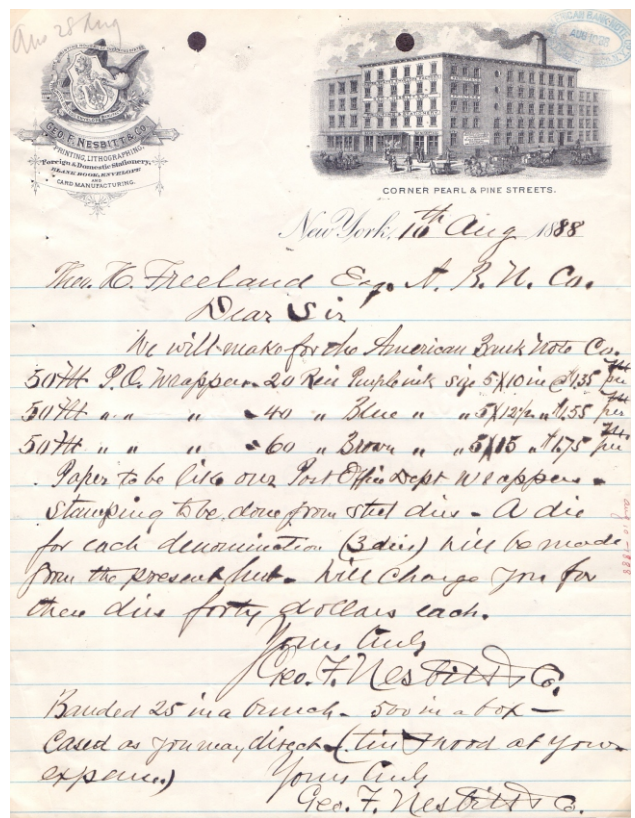 GEO. F. NESBITT & CO
PRINTING, LITHOGRAPHING,
Foreign & Domestic Stationery,
BLANK BOOK, ENVELOPE
AND
CARD MANUFACTURING.
CORNER PEARL & PINE STREETS.
New York, 10th Aug 1888
Theo. H. Freeland Esq. A. B. N. Co.
Dear Sir
We will make for the American Bank Note Co.
50 P.O. Wrappers 20 Reis Purple ink size 5X10 in @ $1.35 per
50 " " " 40 " Blue " " 5X12½ " $1.55 per
50 " " " 60 " Brown " " 5X15 " $1.75 per
Paper to be like our Post Office Dept Wrappers -
Stamping to be done from steel dies - A die
for each denomination (3 dies) will be made
from the present hub - Will charge you for
these dies forty dollars each.
Yours truly
Geo. F. Nesbitt & Co.
Banded 25 in a bunch - 500 in a box -
Cased as you may direct - (tin & wood at your
expense)
Yours truly
Geo. F. Nesbitt & Co.